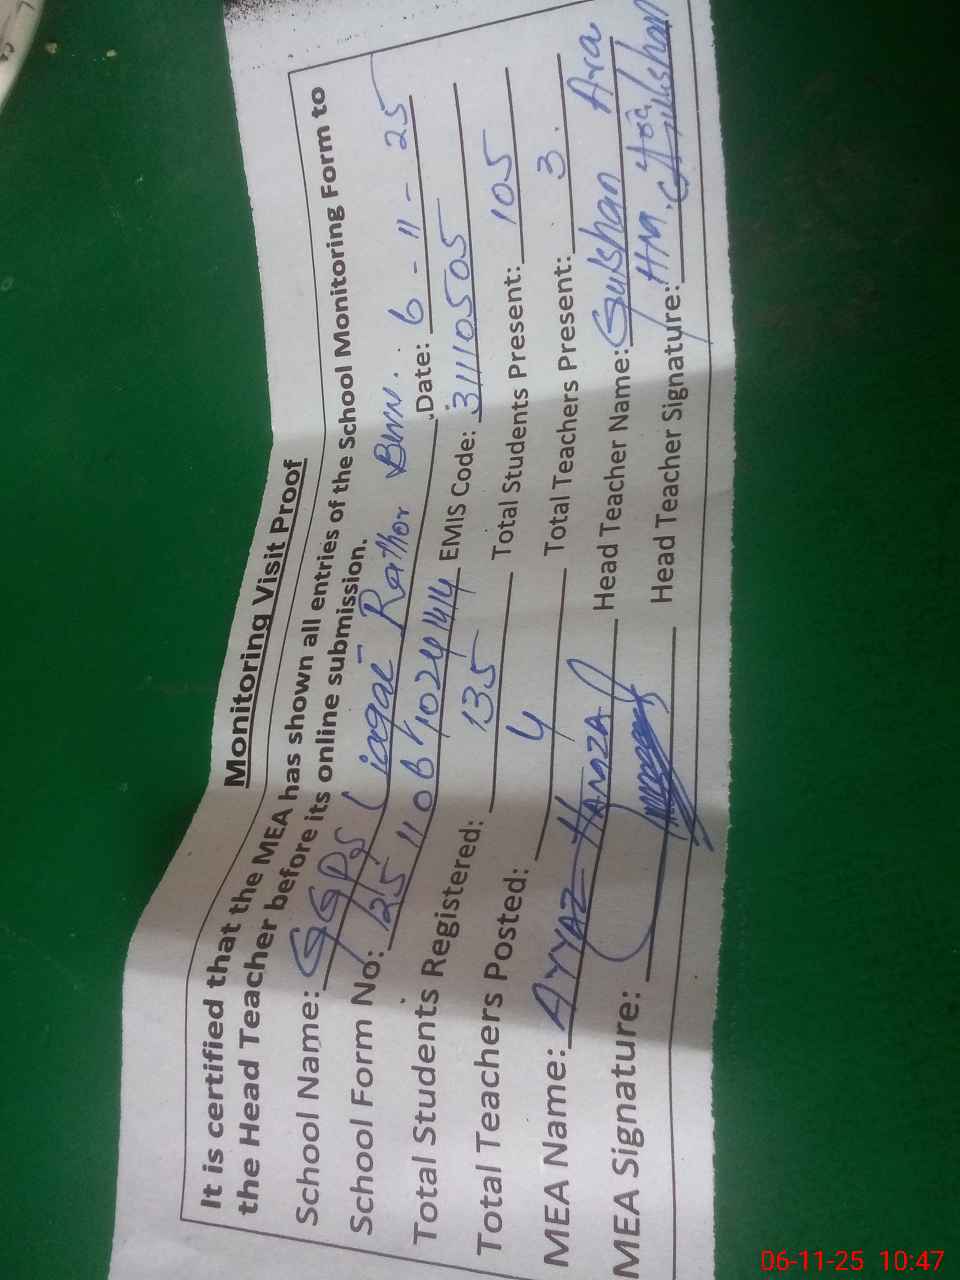 Monitoring Visit Proof
It is certified that the MEA has shown all entries of the School Monitoring Form to
the Head Teacher before its online submission.
School Name: GGPS Rathor Bwn. Date: 6-11-25
School Form No: EMIS Code: 31110505
Total Students Registered: 135 Total Students Present: 105
Total Teachers Posted: 4 Total Teachers Present: 3.
MEA Name: AYYAZ HAMZA Head Teacher Name: Gulshan Ara
MEA Signature: Head Teacher Signature: HM. Gulshan
06-11-25 10:47